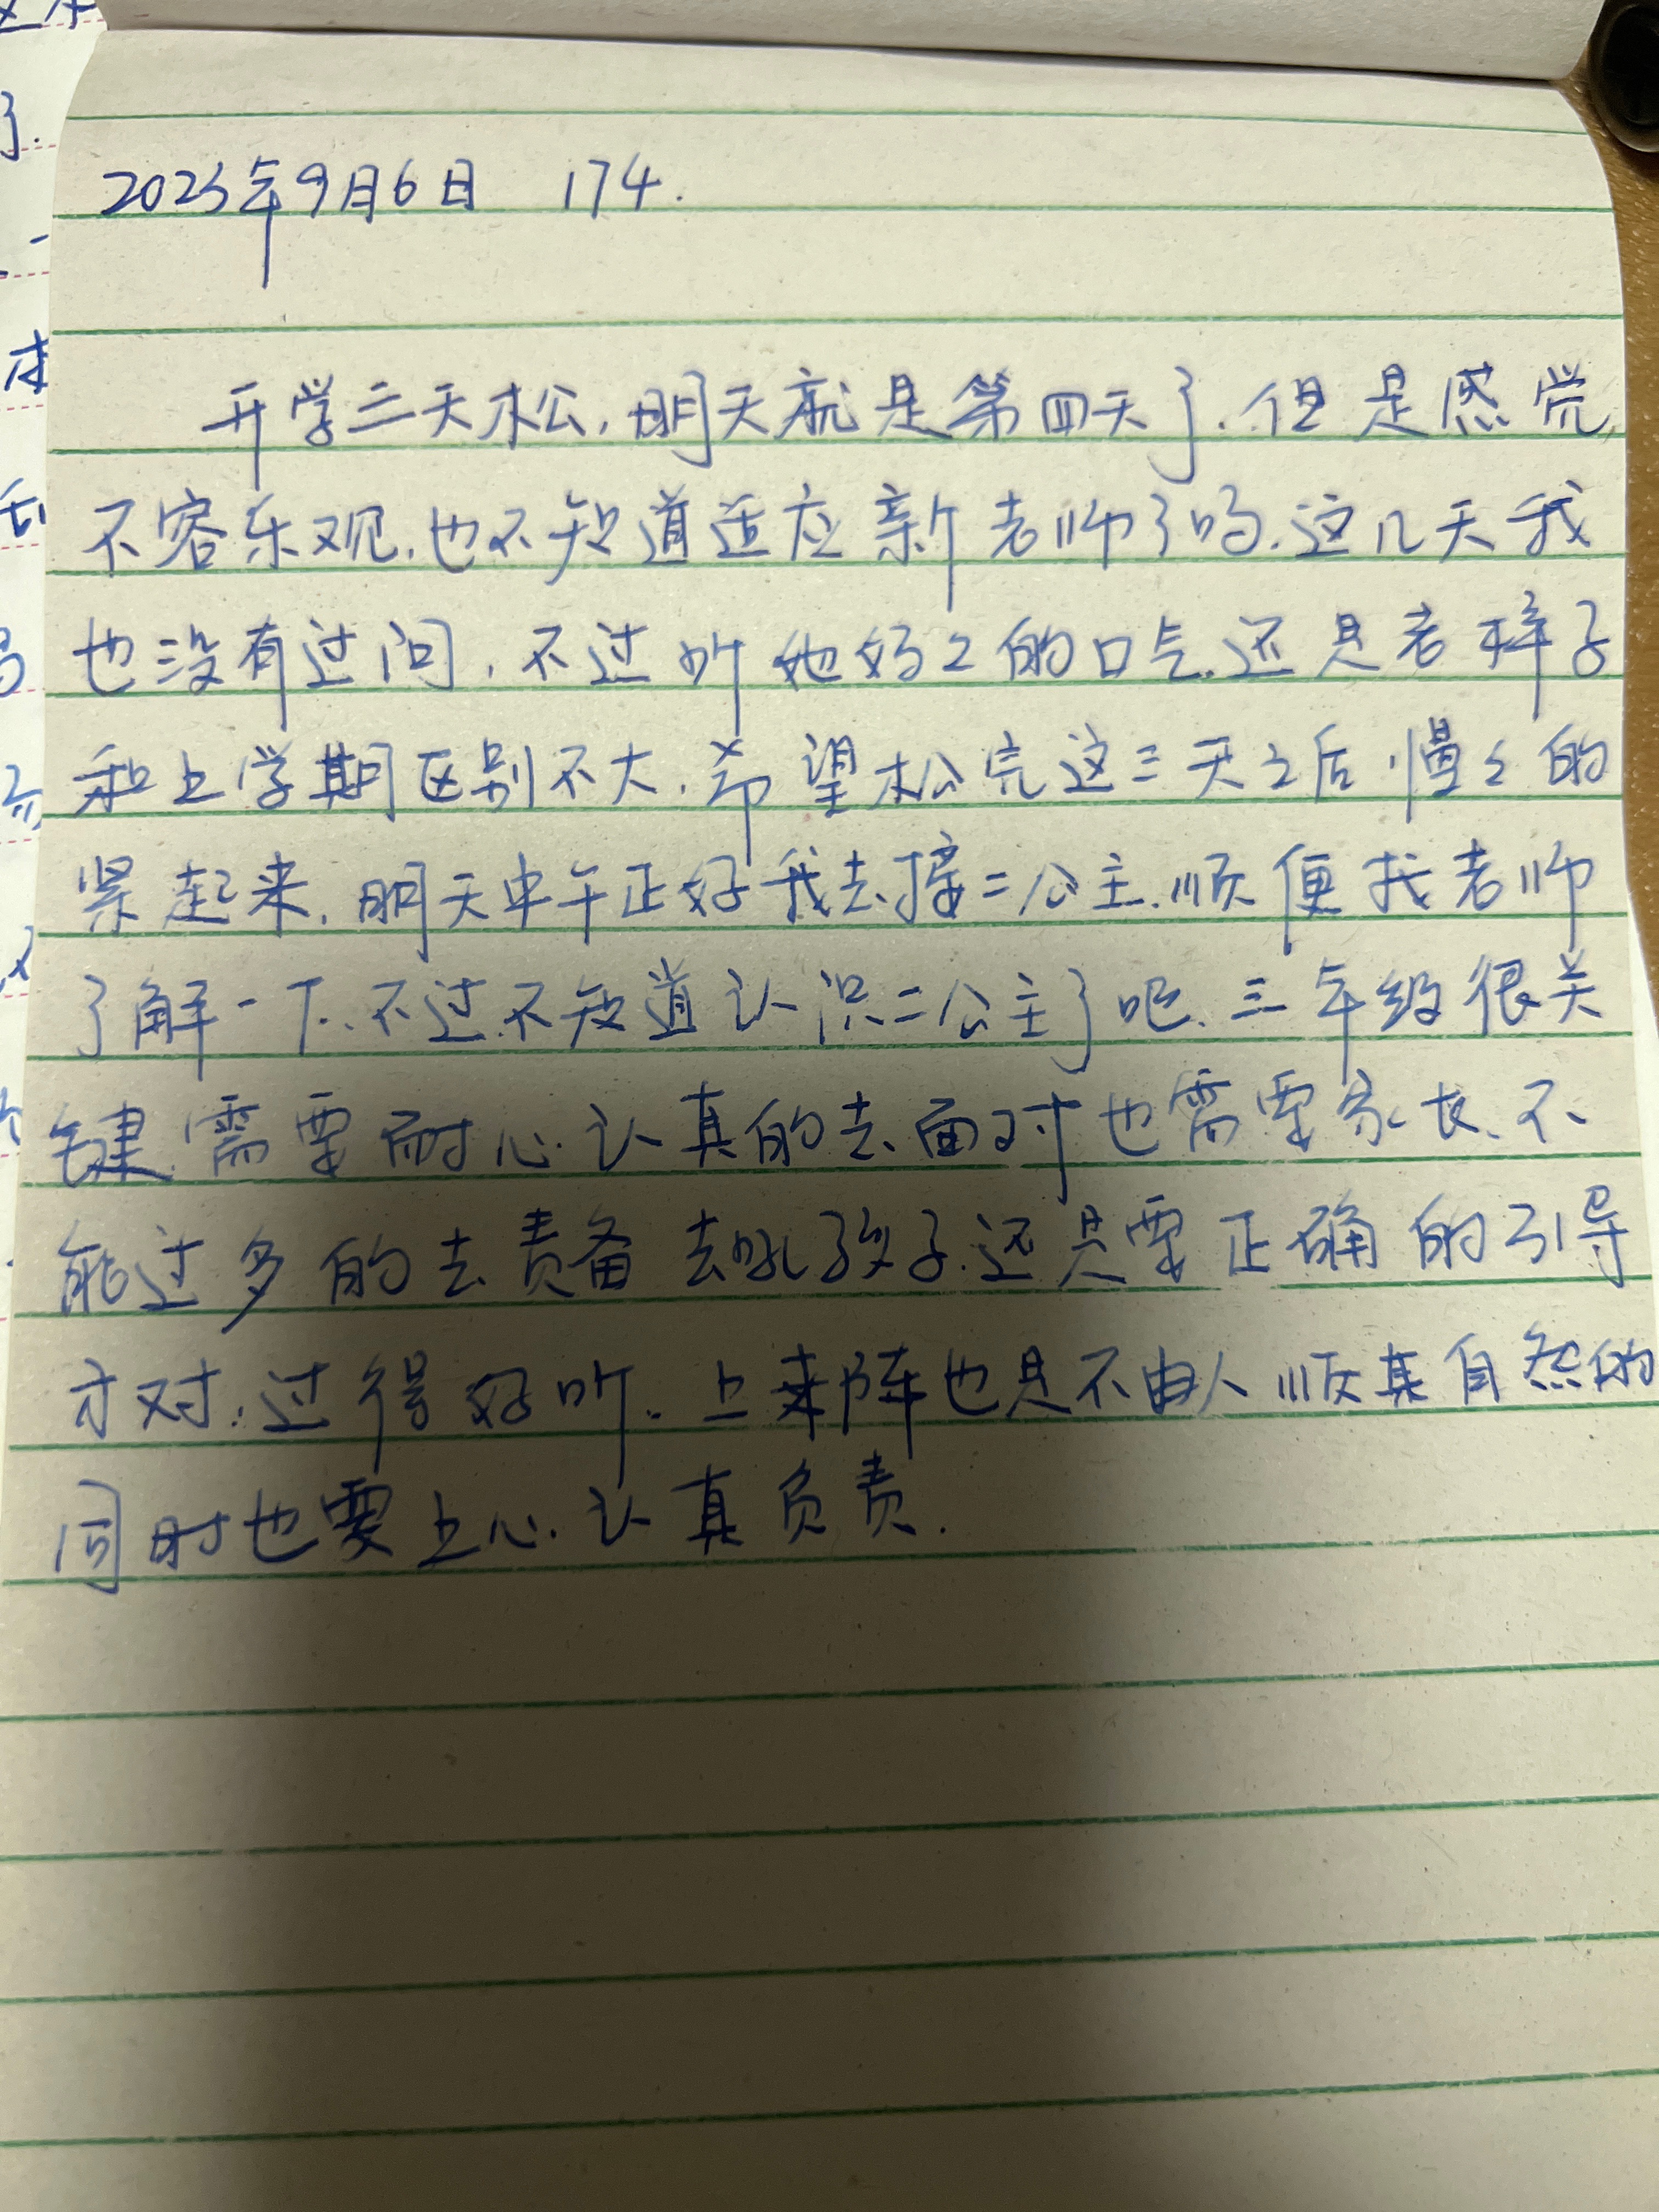 2023年9月6日 174.
开学三天松,明天就是第四天了.但是感觉
不容乐观.也不知道适应新老师了吗.这几天我
也没有过问.不过听她妈妈的口气.还是老样子
和上学期区别不大.希望松完这三天之后.慢慢的
紧起来.明天中午正好我去接二公主.顺便找老师
了解一下.不过.不知道认识二公主了吧.三年级很关
键.需要耐心.认真的去面对也需要家长.不
能过多的去责备去吼孩子.还是要正确的引导
才对.过得好听.上来阵也是不由人顺其自然的
同时也要上心.认真负责.